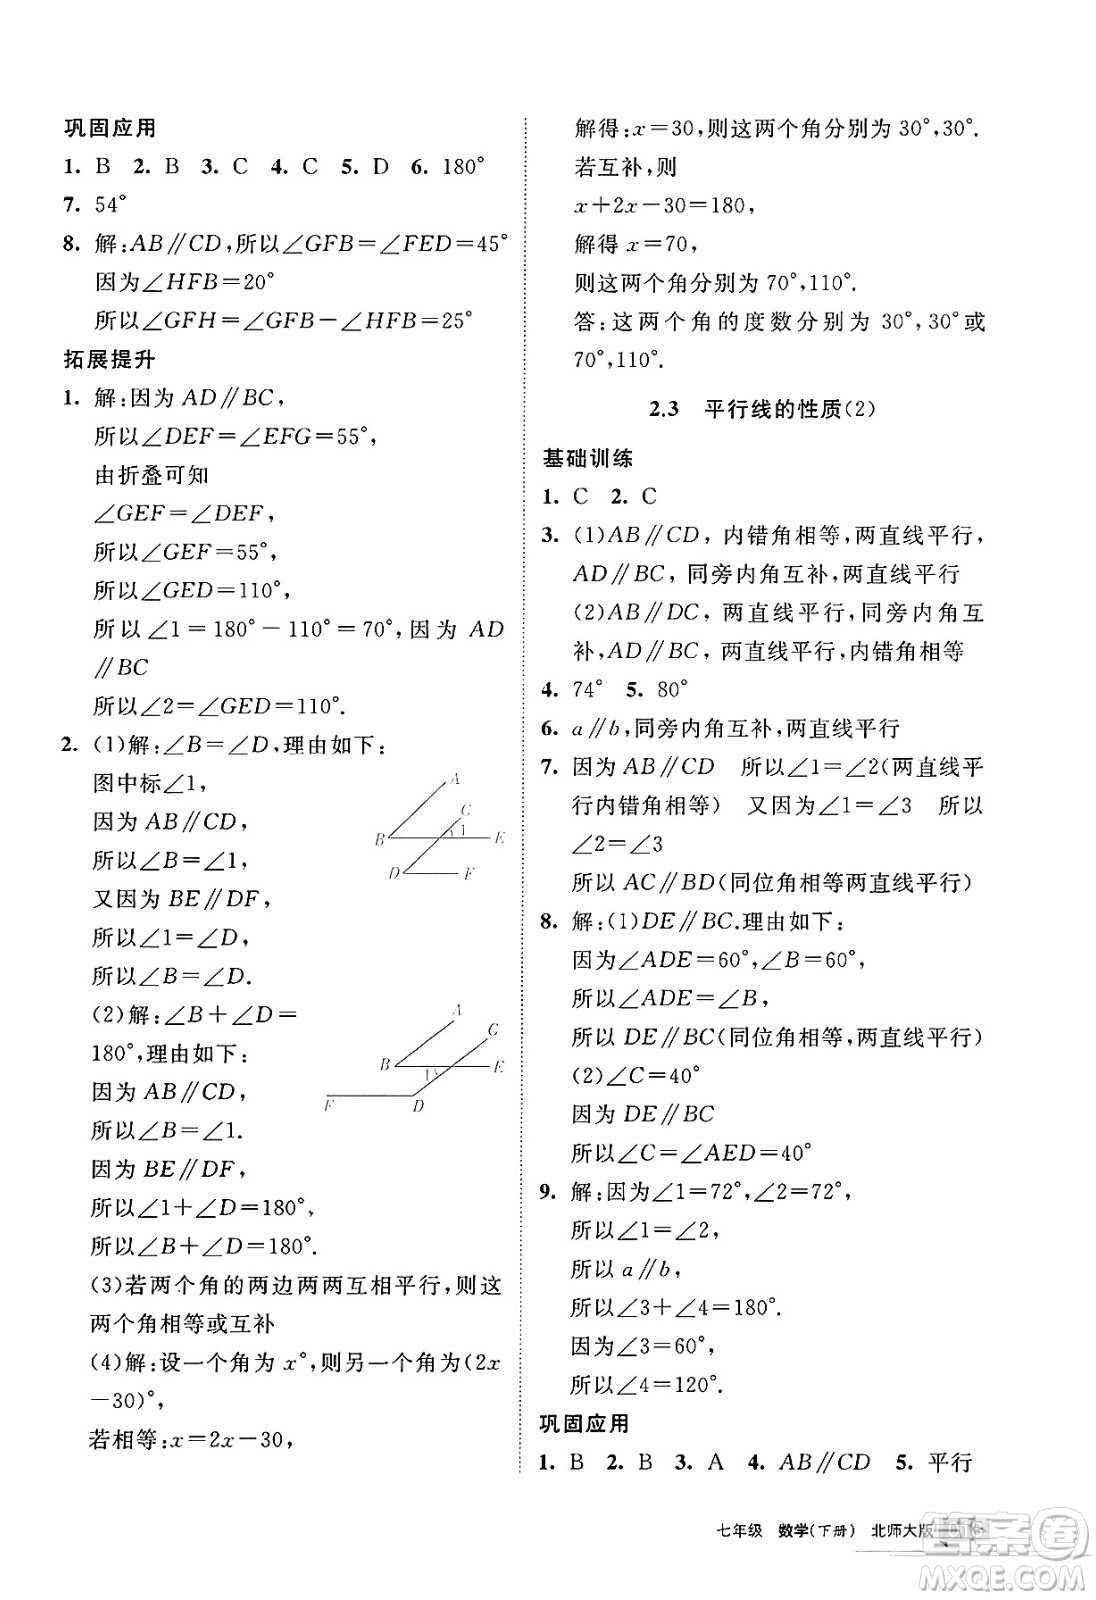 巩固应用
1. B 2. B 3. C 4. C 5. D 6. 180°
7. 54°
8. 解:AB∥CD,所以∠GFB=∠FED=45°
因为∠HFB=20°
所以∠GFH=∠GFB-∠HFB=25°
拓展提升
1. 解:因为 AD∥BC,
所以∠DEF=∠EFG=55°,
由折叠可知
∠GEF=∠DEF,
所以∠GEF=55°,
所以∠GED=110°,
所以∠1=180°-110°=70°,因为 AD
∥BC
所以∠2=∠GED=110°.
2. (1)解:∠B=∠D,理由如下:
图中标∠1,
因为 AB∥CD,
所以∠B=∠1,
又因为 BE∥DF,
所以∠1=∠D,
所以∠B=∠D.
A
C
B 1 E
D F
(2)解:∠B+∠D=
180°,理由如下:
因为 AB∥CD,
所以∠B=∠1.
因为 BE∥DF,
所以∠1+∠D=180°,
所以∠B+∠D=180°.
A
C
B 1 E
F D
(3)若两个角的两边两两互相平行,则这
两个角相等或互补
(4)解:设一个角为 x°,则另一个角为(2x
-30)°,
若相等:x=2x-30,
解得:x=30,则这两个角分别为 30°,30°.
若互补,则
x+2x-30=180,
解得 x=70,
则这两个角分别为 70°,110°.
答:这两个角的度数分别为 30°,30°或
70°,110°.
2.3 平行线的性质(2)
基础训练
1. C 2. C
3. (1)AB∥CD, 内错角相等,两直线平行,
AD∥BC, 同旁内角互补,两直线平行
(2)AB∥DC, 两直线平行,同旁内角互
补,AD∥BC, 内错角相等
4. 74° 5. 80°
6. a∥b,同旁内角互补,两直线平行
7. 因为 AB∥CD 所以∠1=∠2(两直线平
行内错角相等) 又因为∠1=∠3 所以
∠2=∠3
所以 AC∥BD(同位角相等两直线平行)
8. 解:(1)DE∥BC.理由如下:
因为∠ADE=60°,∠B=60°,
所以∠ADE=∠B,
所以 DE∥BC(同位角相等,两直线平行)
(2)∠C=40°
因为 DE∥BC
所以∠C=∠AED=40°
9. 解:因为∠1=72°,∠2=72°,
所以∠1=∠2,
所以 a∥b,
所以∠3+∠4=180°.
因为∠3=60°,
所以∠4=120°.
巩固应用
1. B 2. B 3. A 4. AB∥CD 5. 平行
七年级 数学(下册) 北师大版
答案卷
MXQE.COM